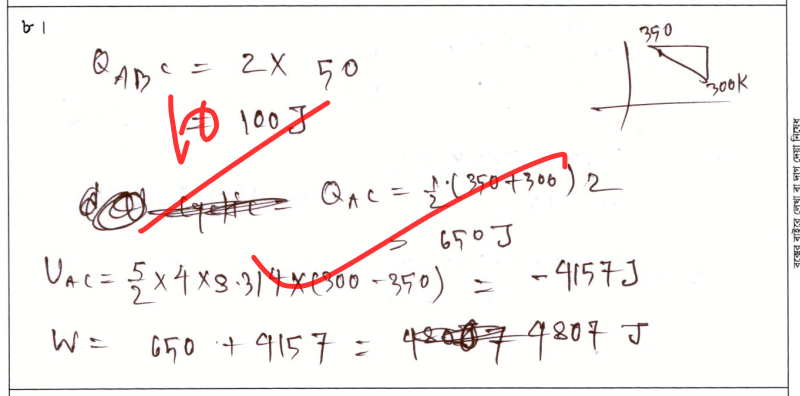 ৮।
350
300K
Q_ABC = 2 × 50
= 100 J
Q_AC = 1/2·(350+300) 2
= 650 J
U_AC = 5/2 × 4 × 8.314 × (300 - 350) = -4157 J
W = 650 + 4157 = 4807 J
বক্সের বাইরে লেখা বা দাগ দেয়া নিষেধ